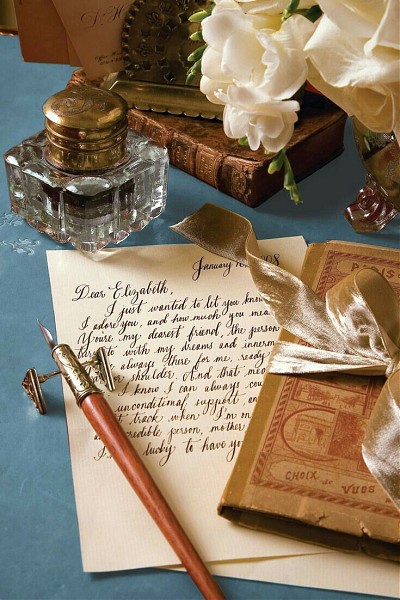 Dr. H
January 10, 1908
Dear Elizabeth,
I just wanted to let you know
I adore you, and how much you mea
You're my dearest friend, the person
to with my dreams and innerm
always there for me, ready
shoulder. And that mea
I know I can always cou
unconditional support a
track when I'm
credible person, mother
lucky to have yo
PARIS
CHOIX de VUES